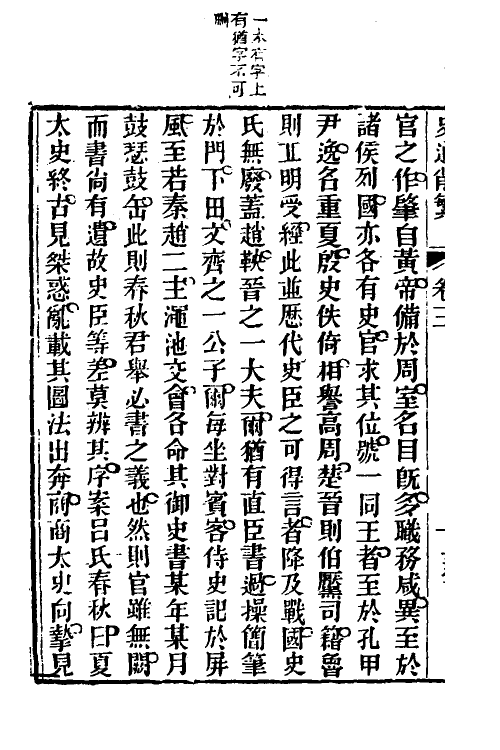 史通削繁 卷三
一本有字上
有猶字不可
刪
官之作肇自黃帝備於周室名目旣多職務咸異至於
諸侯列國亦各有史官求其位號一同王者至於孔甲
尹逸名重夏殷史佚倚相譽高周楚晉則伯黶司籍魯
則丘明受經此並歷代史臣之可得言者降及戰國史
氏無廢蓋趙鞅晉之一大夫爾猶有直臣書過操簡筆
於門下田文齊之一公子爾每坐對賓客侍史記於屏
風至若秦趙二主澠池交會各命其御史書某年某月
鼓瑟鼓缶此則春秋君舉必書之義也然則官雖無闕
而書尙有遺故史臣等差莫辨其序案呂氏春秋曰夏
太史終古見桀惑亂載其圖法出奔商商太史向摯見